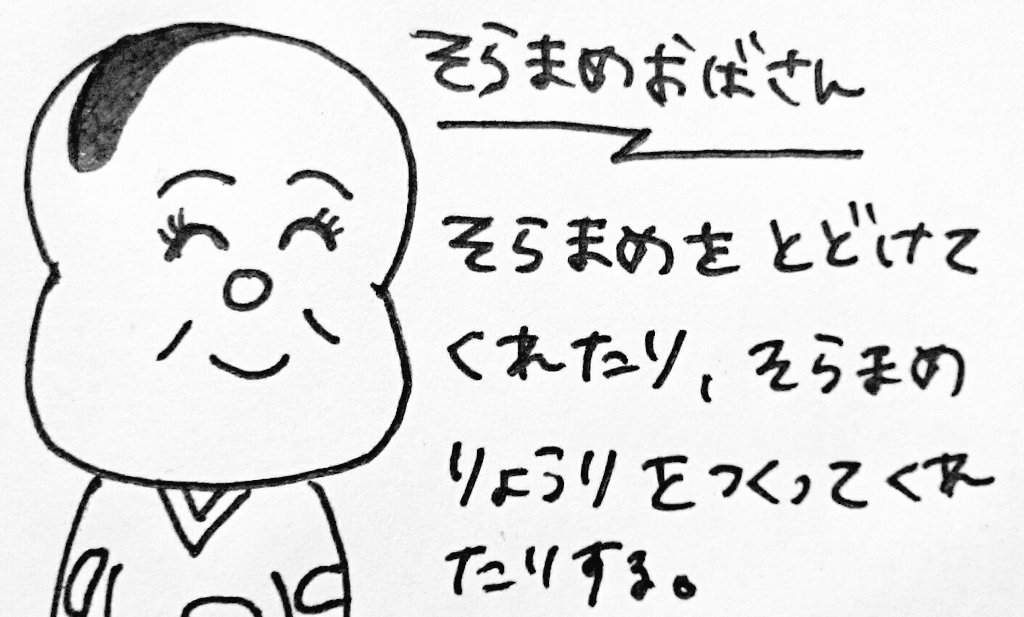 そらまめおばさん
そらまめをとどけて
くれたり、そらまめ
りょうりをつくってくれ
たりする。